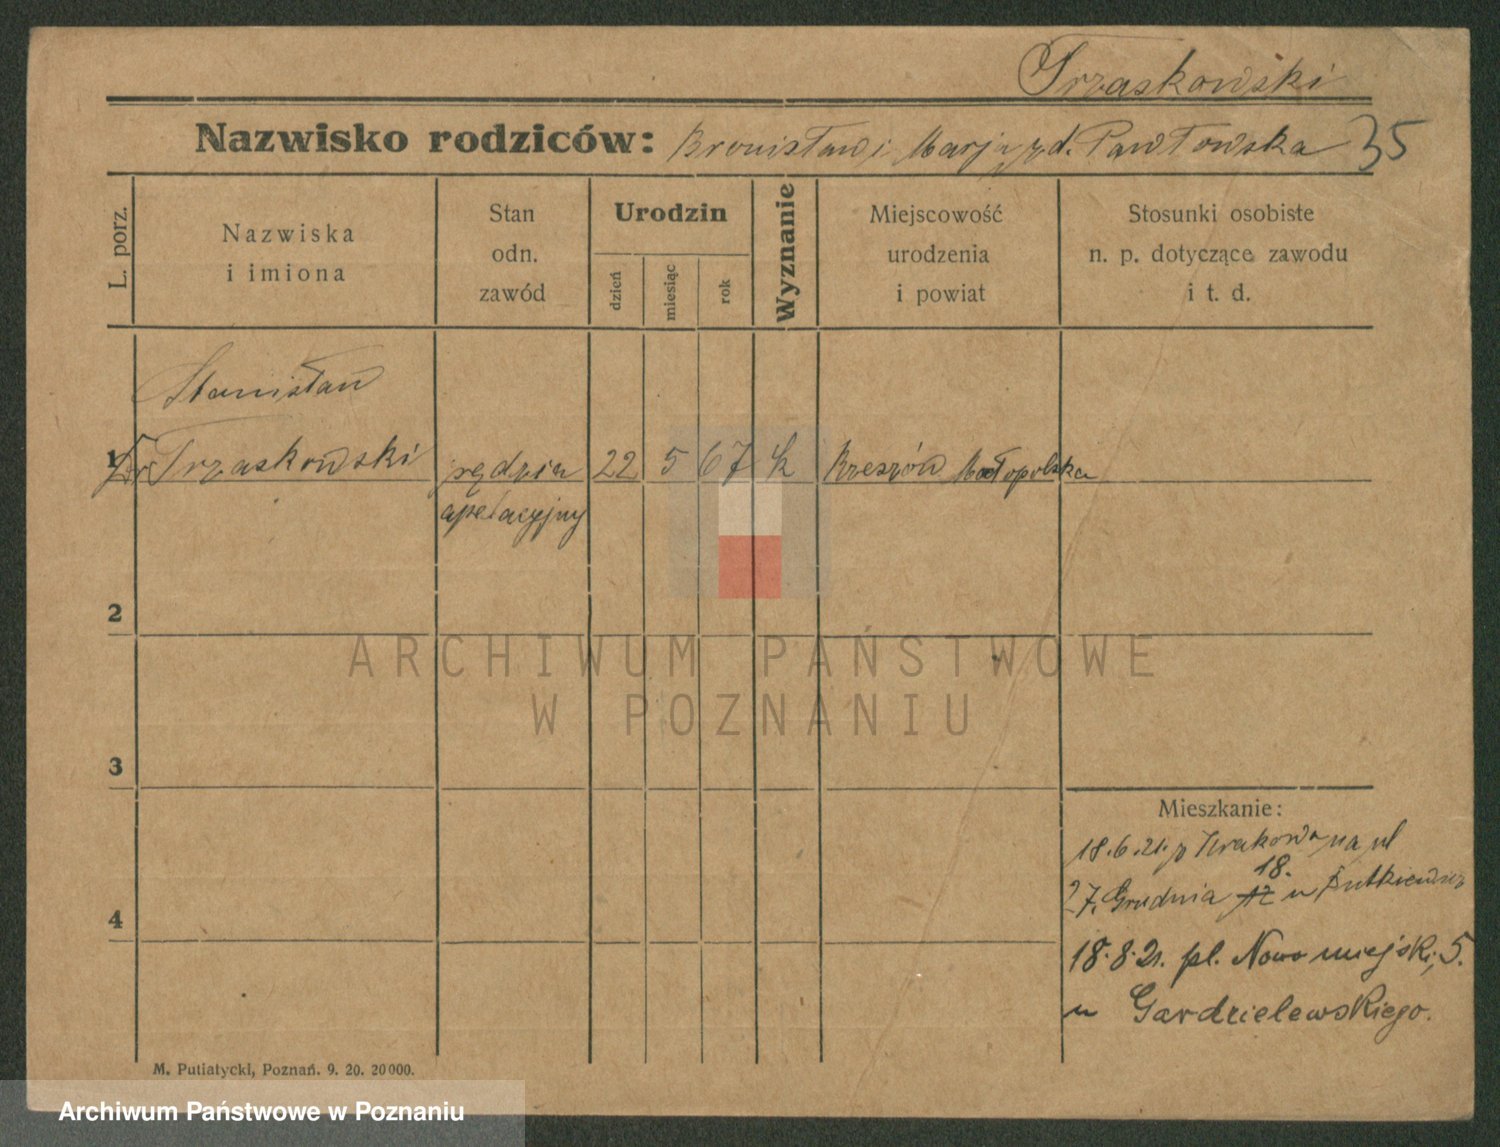 Trzaskowski
Nazwisko rodziców: Bronisław i Marja zd. Pawłowska 35
L. porz.
Nazwiska
i imiona
Stan
odn.
zawód
Urodzin
dzień
miesiąc
rok
Wyznanie
Miejscowość
urodzenia
i powiat
Stosunki osobiste
n. p. dotyczące zawodu
i t. d.
Stanisław
1 Dr Trzaskowski sędzia 22 5 67 k Rzeszów Małopolska
apelacyjny
2
3
4
Mieszkanie:
18.6.21. z Krakowa na ul
18.
27. Grudnia 12 u Rutkiewicz
18.8.21. pl. Nowomiejski, 5.
u Gardzielewskiego.
M. Putiatycki, Poznań. 9. 20. 20000.
ARCHIWUM PAŃSTWOWE
W POZNANIU
Archiwum Państwowe w Poznaniu